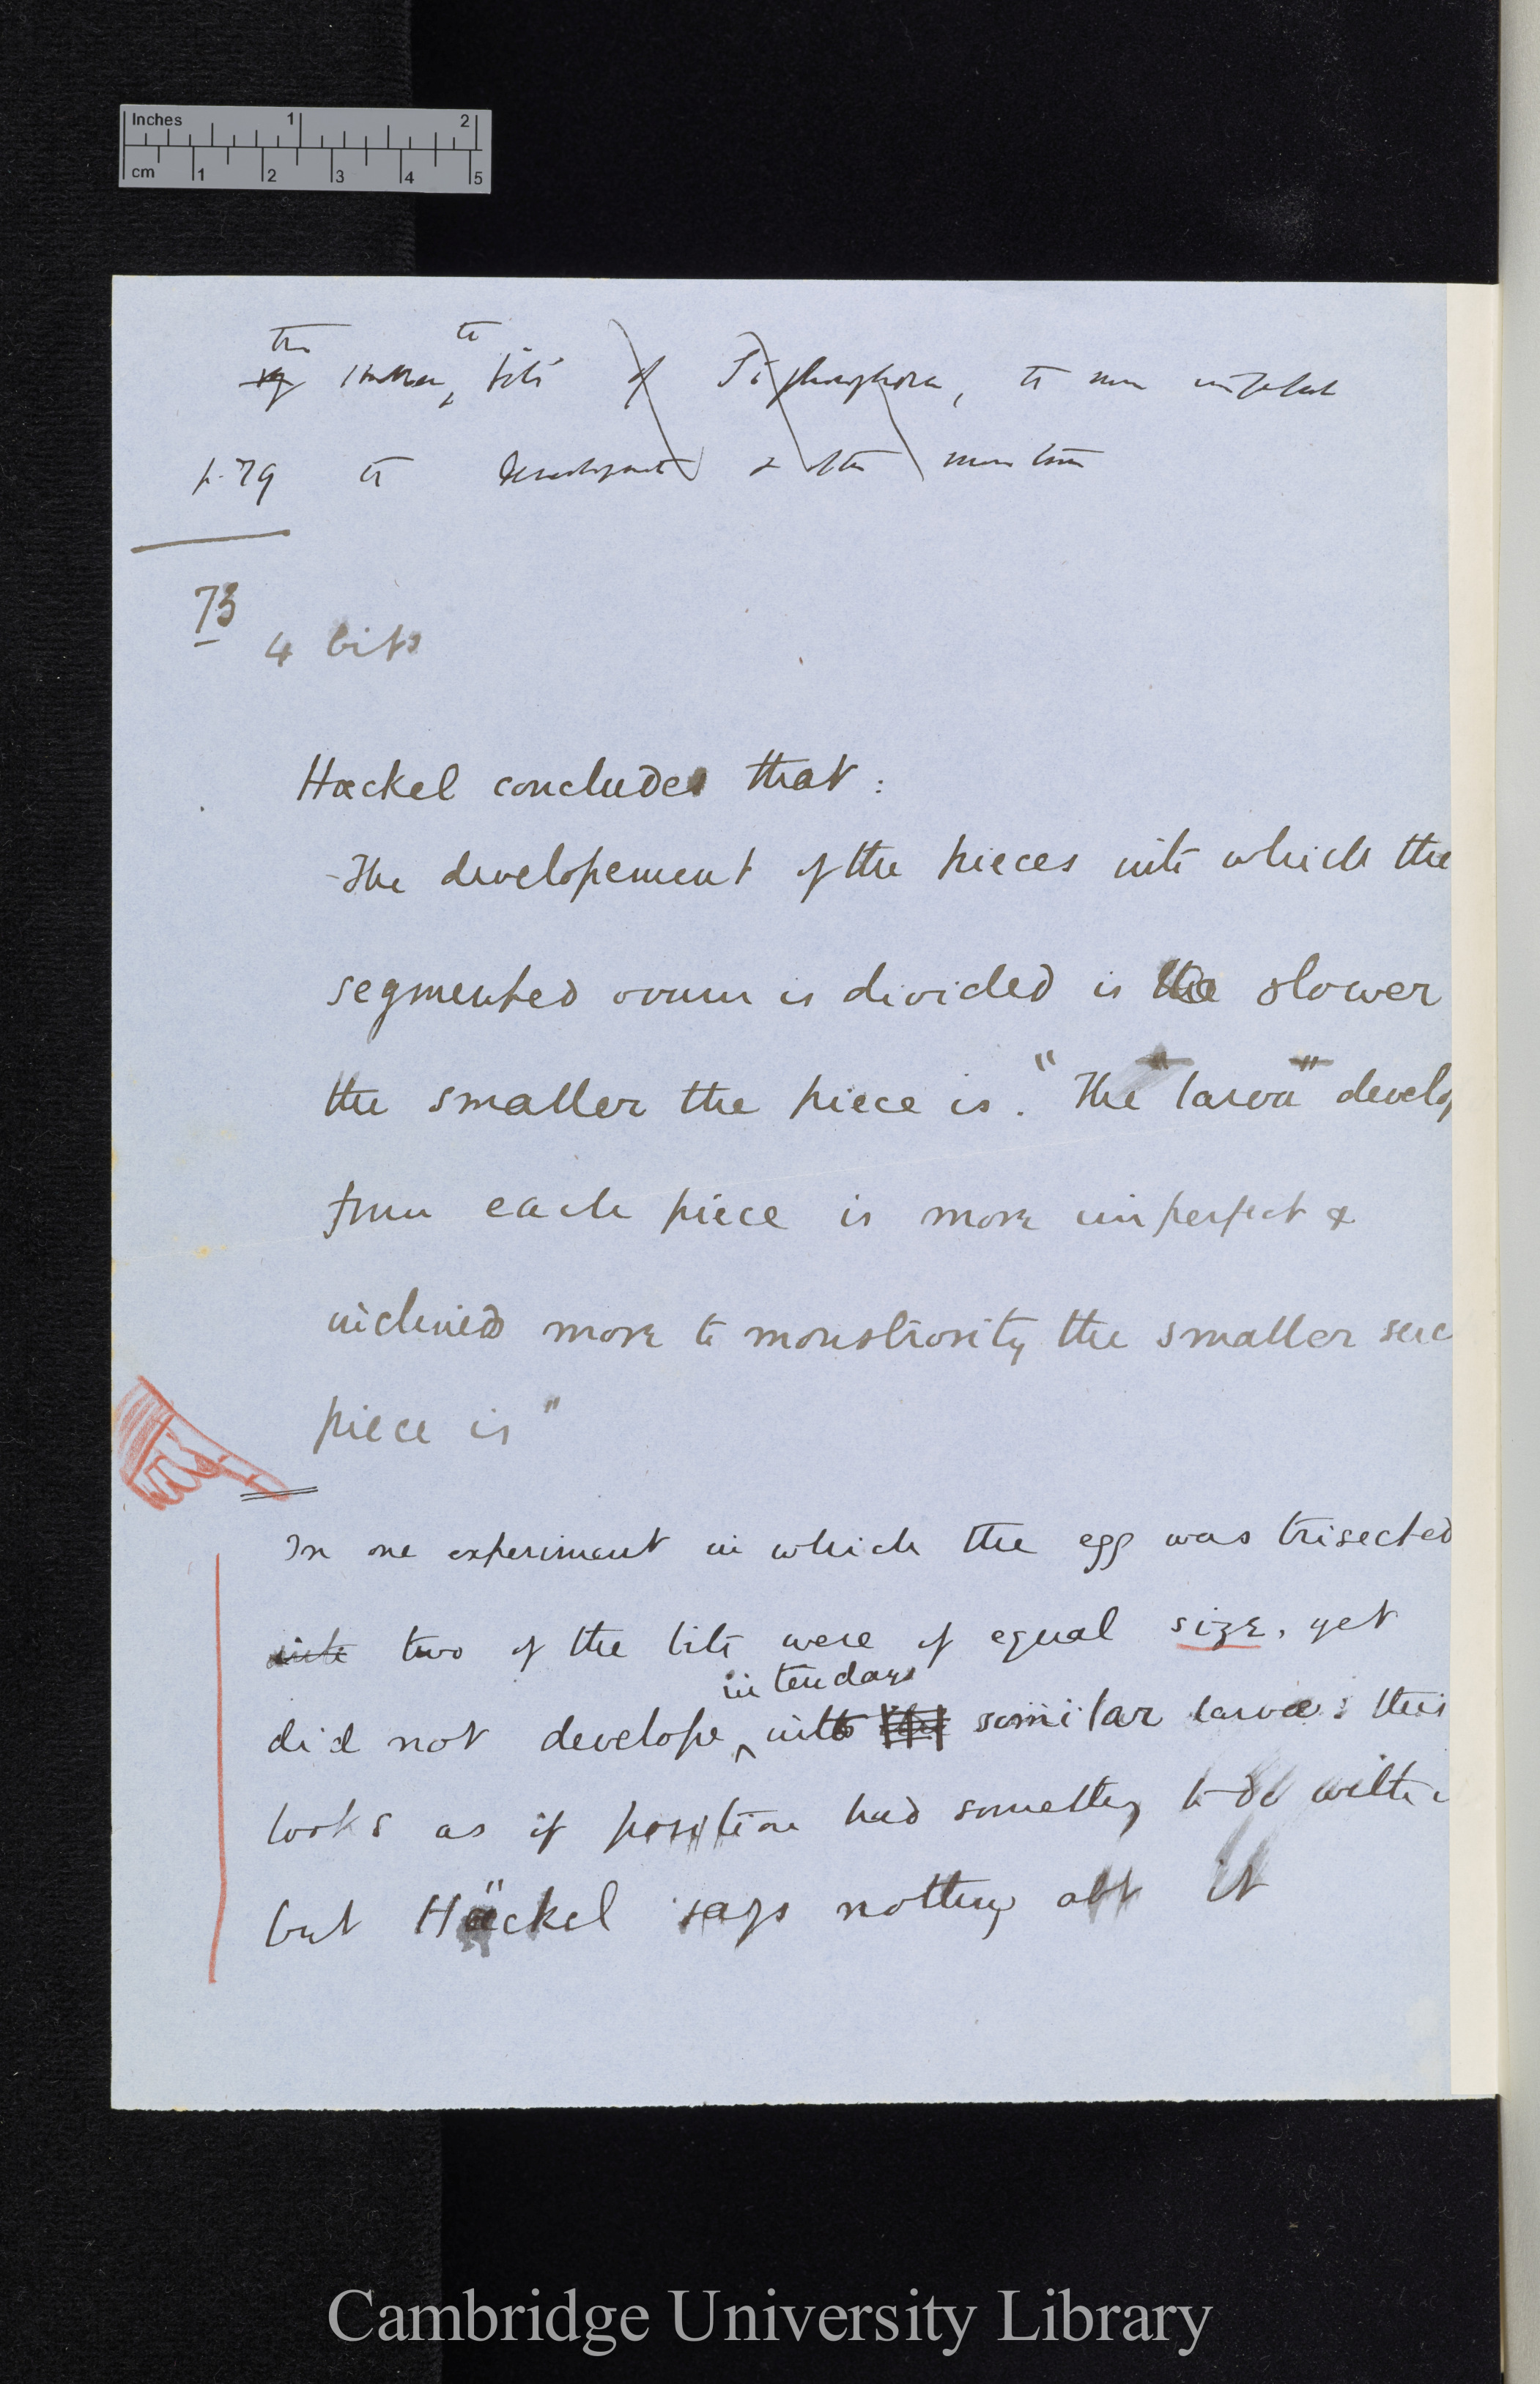 Inches 1 2
cm 1 2 3 4 5
the the
smaller, bits of Siphonophora, the more imperfect
p. 79 the development & often monstrous
73
4 bits
Hæckel concludes that :
The developement of the pieces into which the
segmented ovum is divided is the slower
the smaller the piece is. "The larva develop
from each piece is more imperfect &
inclined more to monstrosity the smaller suc
piece is"
In one experiment in which the egg was trisected
into two of the bits were of equal size, yet
in ten days
did not develope into similar larvæ: this
looks as if position had something to do with i
but Häckel says nothing abt it
Cambridge University Library